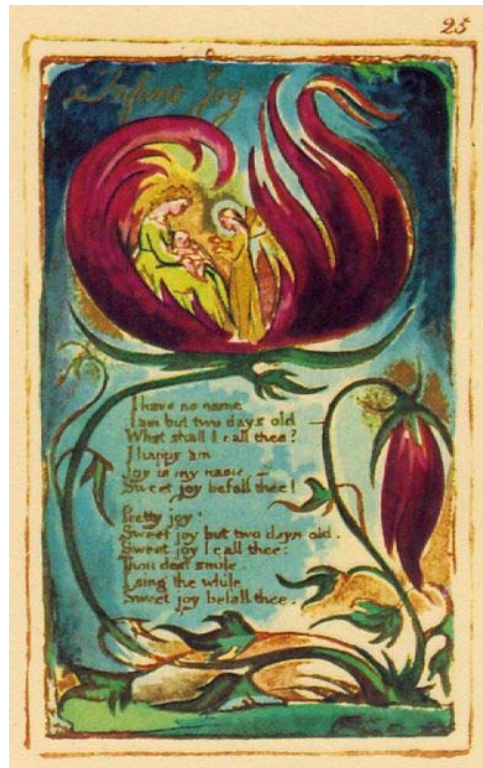 25
Infant Joy
I have no name
I am but two days old —
What shall I call thee?
I happy am
Joy is my name —
Sweet joy befall thee!
Pretty joy!
Sweet joy but two days old.
Sweet joy I call thee:
Thou dost smile.
I sing the while
Sweet joy befall thee.